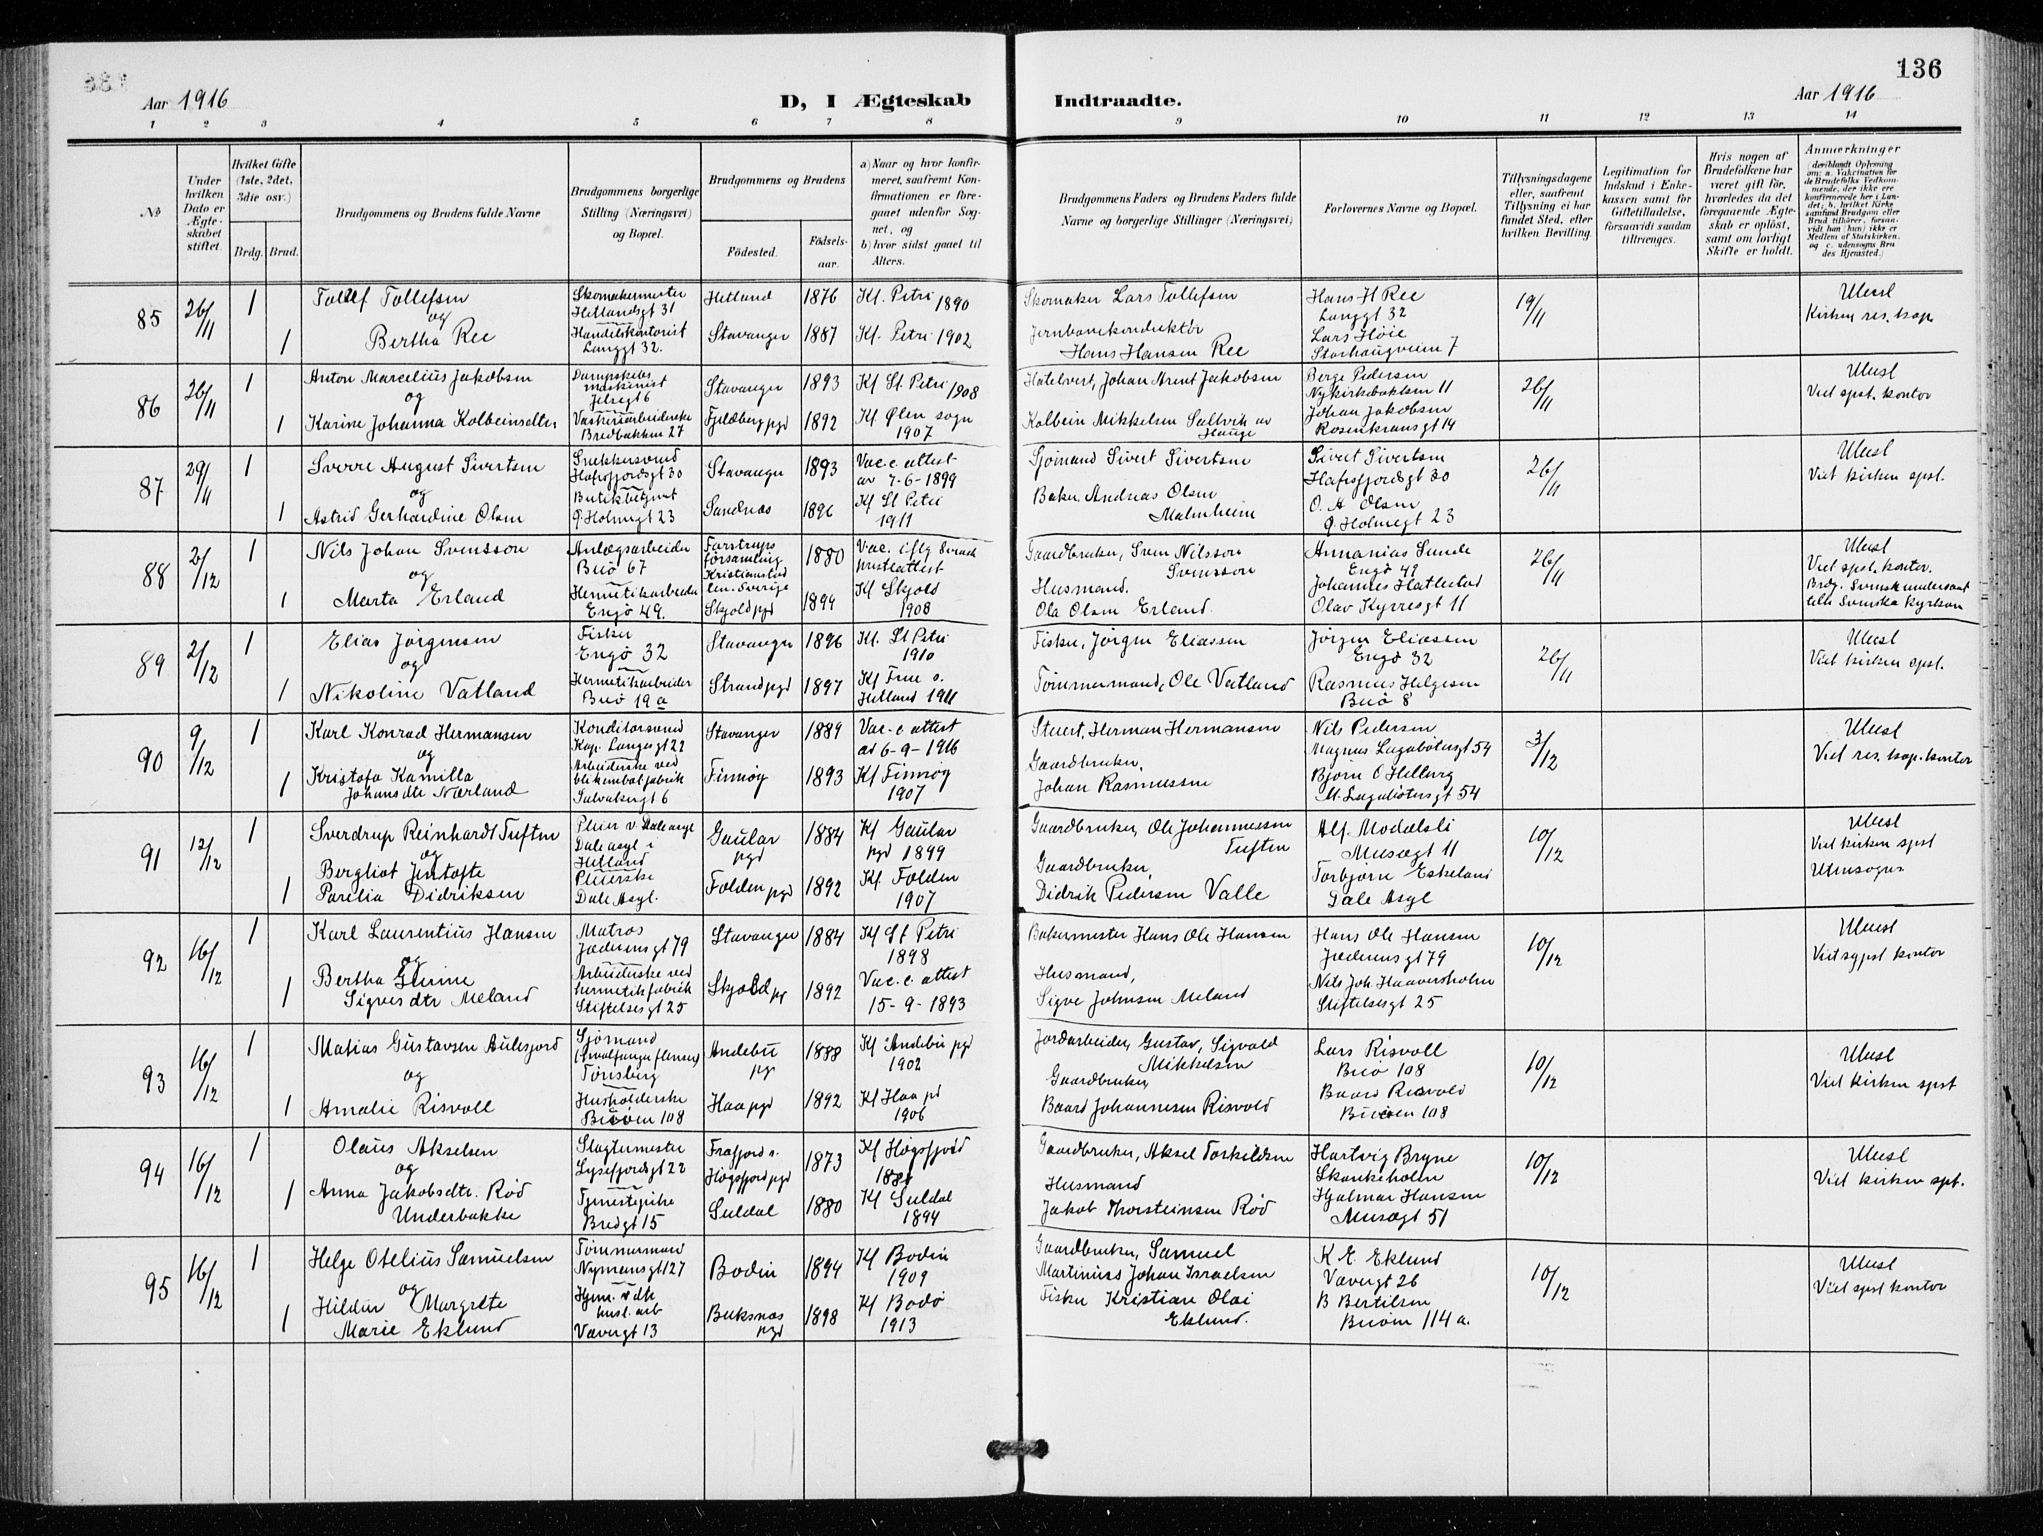 136
Aar 1916
D, I Ægteskab
Indtraadte.
Aar 1916
1 2 3 4 5 6 7 8 9 10 11 12 13 14
№
Under hvilken Dato er Ægteskabet stiftet.
Hvilket Gifte (1ste, 2det, 3die osv.)
Brdg. Brud.
Brudgommens og Brudens fulde Navne
Brudgommens borgerlige Stilling (Næringsvei) og Bopæl.
Brudgommens og Brudens
Fødested.
Fødselsaar.
a) Naar og hvor konfirmeret, saafremt Konfirmationen er foregaaet udenfor Sognet, og
b) hvor sidst gaaet til Alters.
Brudgommens Faders og Brudens Faders fulde Navne og borgerlige Stillinger (Næringsvei)
Forlovernes Navne og Bopæl.
Tillysningsdagene eller, saafremt Tillysning ei har fundet Sted, efter hvilken Bevilling.
Legitimation for Indskud i Enkekassen samt for Giftetilladelse, forsaavidt saadan tiltrænges.
Hvis nogen af Brudefolkene har været gift før, hvorledes da det foregaaende Ægteskab er opløst, samt om lovligt Skifte er holdt.
Anmærkninger
(deriblandt Oplysning om: a. Vakcination for de Brudefolks Vedkommende, der ikke ere konfirmerede her i Landet; b. hvilket Kirkesamfund Brudgom eller Brud tilhører, forsaavidt han (hun) ikke er Medlem af Statskirken, og c. udensogns Brudes Hjemsted.)
85 26/11 1
Tollef Tollefsen
og
1 Bertha Ree
Skomakermester
Hetlandsgt 31
Handelskontorist
Langgt 32.
Hetland 1876 Kf. Petri 1890
Stavanger 1887 Kf. Petri 1902
Skomaker Lars Tollefsen
Jernbanekonduktør
Hans Hansen Ree
Hans H Ree
Langgt 32
Lars Høie
Storhaugveien 7
19/11
Ulæst
Kirken res. kap.
86 26/11 1
Anton Marcelius Jakobsen
og
1 Karine Johanna Kolbeinsdtr.
Dampskibsmaskinist
Jelsegt 6
Vaskeriarbeiderske
Bredbakken 27
Stavanger 1893 Kf St Petri 1908
Fjeldberg pgd 1892 Kf Ølen sogn
1907
Hotelvert, Johan Arent Jakobsen
Kolbein Mikkelsen Sallvik av
Hauge
Berge Pedersen
Nykirkebakken 11
Johan Jakobsen
Rosenkransgt 14
26/11
Ulæst
Viet spst. kontor
87 29/11 1
Sverre August Sivertsen
og
1 Astrid Gerhardine Olsen
Snekkersvend
Hafrsfjordsgt 30
Butikbetjent
G. Holmegt 23
Stavanger 1893 Vac. c. attest
av 7-6-1899
Sandnæs 1896 Kf St Petri
1911
Sjømand Sivert Sivertsen
Baker Andreas Olsen
Malmheim
Sivert Sivertsen
Hafrsfjordsgt 30
O. A Olsen
G. Holmegt 23
26/11
Ulæst
Viet kirken spst.
88 2/12 1
Nils Johan Svensson
og
1 Marta Erland
Anlægsarbeider
Buø 67
Hermetikarbeider
Engø 49.
Farstrups
församling
Kristianstad
len. Sverige 1880 Vac. iflg Svensk
presteattest
Skjold pgd 1894 Kf Skjold
1908
Gaardbruker, Sven Nilsson
Svensson
Husmand.
Ola Olsen Erland.
Ananias Sunde
Engø 49
Johannes Hatlestad
Olav Kyrresgt 11
26/11
Ulæst
Viet spst. kontor.
Brdg. Svensk undersaat
tilh Svenska Kyrkan
89 2/12 1
Elias Jørgensen
og
1 Nikoline Vatland
Fisker
Engø 32
Hermetikarbeider
Buø 19 a
Stavanger 1896 Kf. St Petri
1910
Strand pgd 1897 Kf Frue s.
Hetland 1911
Fisker, Jørgen Eliassen
Tømmermand, Ole Vatland
Jørgen Eliassen
Engø 32
Rasmus Helgesen
Buø 8
26/11
Ulæst
Viet kirken spst.
90 9/12 1
Karl Konrad Hermansen
og
1 Kristofa Kamilla
Johansdtr Nærland
Konditorsvend
Kap. Langesgt 22
Arbeiderske ved
blikemballfabrik
Salvakergt 6
Stavanger 1889 Vac-c attest
av 6-9-1916
Finnøy 1893 Kf Finnøy
1907
Stuert, Herman Hermansen
Gaardbruker,
Johan Rasmussen
Nils Pedersen
Magnus Lagabøtersgt 54
Bjørn O Helberg
M. Lagabøtersgt 54
3/12
Ulæst
Viet res. kap. kontor
91 12/12 1
Sverdrup Reinhardt Tuften
og
1 Bergliot Jentofte
Parelia Didriksen
Pleier v. Dale asyl
Dale asyl i
Hetland
Pleierske
Dale Asyl.
Gaular pgd 1884 Kf Gaular
pgd 1899
Folden pgd 1892 Kf. Folden
1907
Gaardbruker, Ole Johannessen
Tuften
Gaardbruker,
Didrik Pedersen Valle
Alf. Modalsli
Musægt 11
Torbjørn Eskeland
Dale Asyl
10/12
Ulæst
Viet kirken spst
Utensogns
92 16/12 1
Karl Laurentius Hansen
og
1 Bertha Gurine
Sigvesdtr Meland
Matros
Jæderensgt 79
Arbeiderske ved
hermetikfabrik
Stiftelsesgt 25
Stavanger 1884 Kf St Petri
1898
Skjold pr 1892 Vac. c. attest
15-9-1893
Bakermester Hans Ole Hansen
Husmand,
Sigve Johnsen Meland
Hans Ole Hansen
Jæderensgt 79
Nils Joh Haaversholm
Stiftelsesgt 25
10/12
Ulæst
Viet spst kontor
93 16/12 1
Matias Gustavsen Aulesjord
og
1 Amalie Risvoll
Sjømand
(hvalfangerflaaten)
Tønsberg
Husholderske
Buøen 108
Andebu pr 1888 Kf Andebu pgd
1902
Haa pgd 1892 Kf Haa pd
1906
Jordarbeider, Gustav, Sigvald
Mikkelsen
Gaardbruker,
Baard Johannesen Risvold
Lars Risvoll
Buø 108
Baard Risvold
Buøen 108
10/12
Ulæst
Viet kirken spst
94 16/12 1
Olaus Akselsen
og
1 Anna Jakobsdtr. Rød
Underbakke
Slagtermester
Lysefjordsgt 22
Tjenestepike
Bredgt 15
Frafjord s.
Høgsfjord pgd 1873 Kf Høgsfjord
Suldal 1880 Kf Suldal
1894
Gaardbruker, Aksel Torkildsen
Husmand
Jakob Thorsteinsen Rød
Hartvig Bryne
Skankeholm
Hjalmar Hansen
Musægt 51
10/12
Ulæst
Viet kirken spst.
95 16/12 1
Helge Otelius Samuelsen
og
1 Hildur Margrete
Marie Eklund
Tømmermand
Nymansgt 127
Hjem. v dk
husl. arb
Vævergt 13
Bodin 1894 Kf Bodin
1909
Buksnæs
pgd 1898 Kf Bodø
1913
Gaardbruker, Samuel
Martinus Johan Israelsen
Fisker Kristian Olai
Eklund.
K E. Eklund
Vævergt 26
B Bertilsen
Buøen 114 a.
10/12
Ulæst
Viet spst kontor